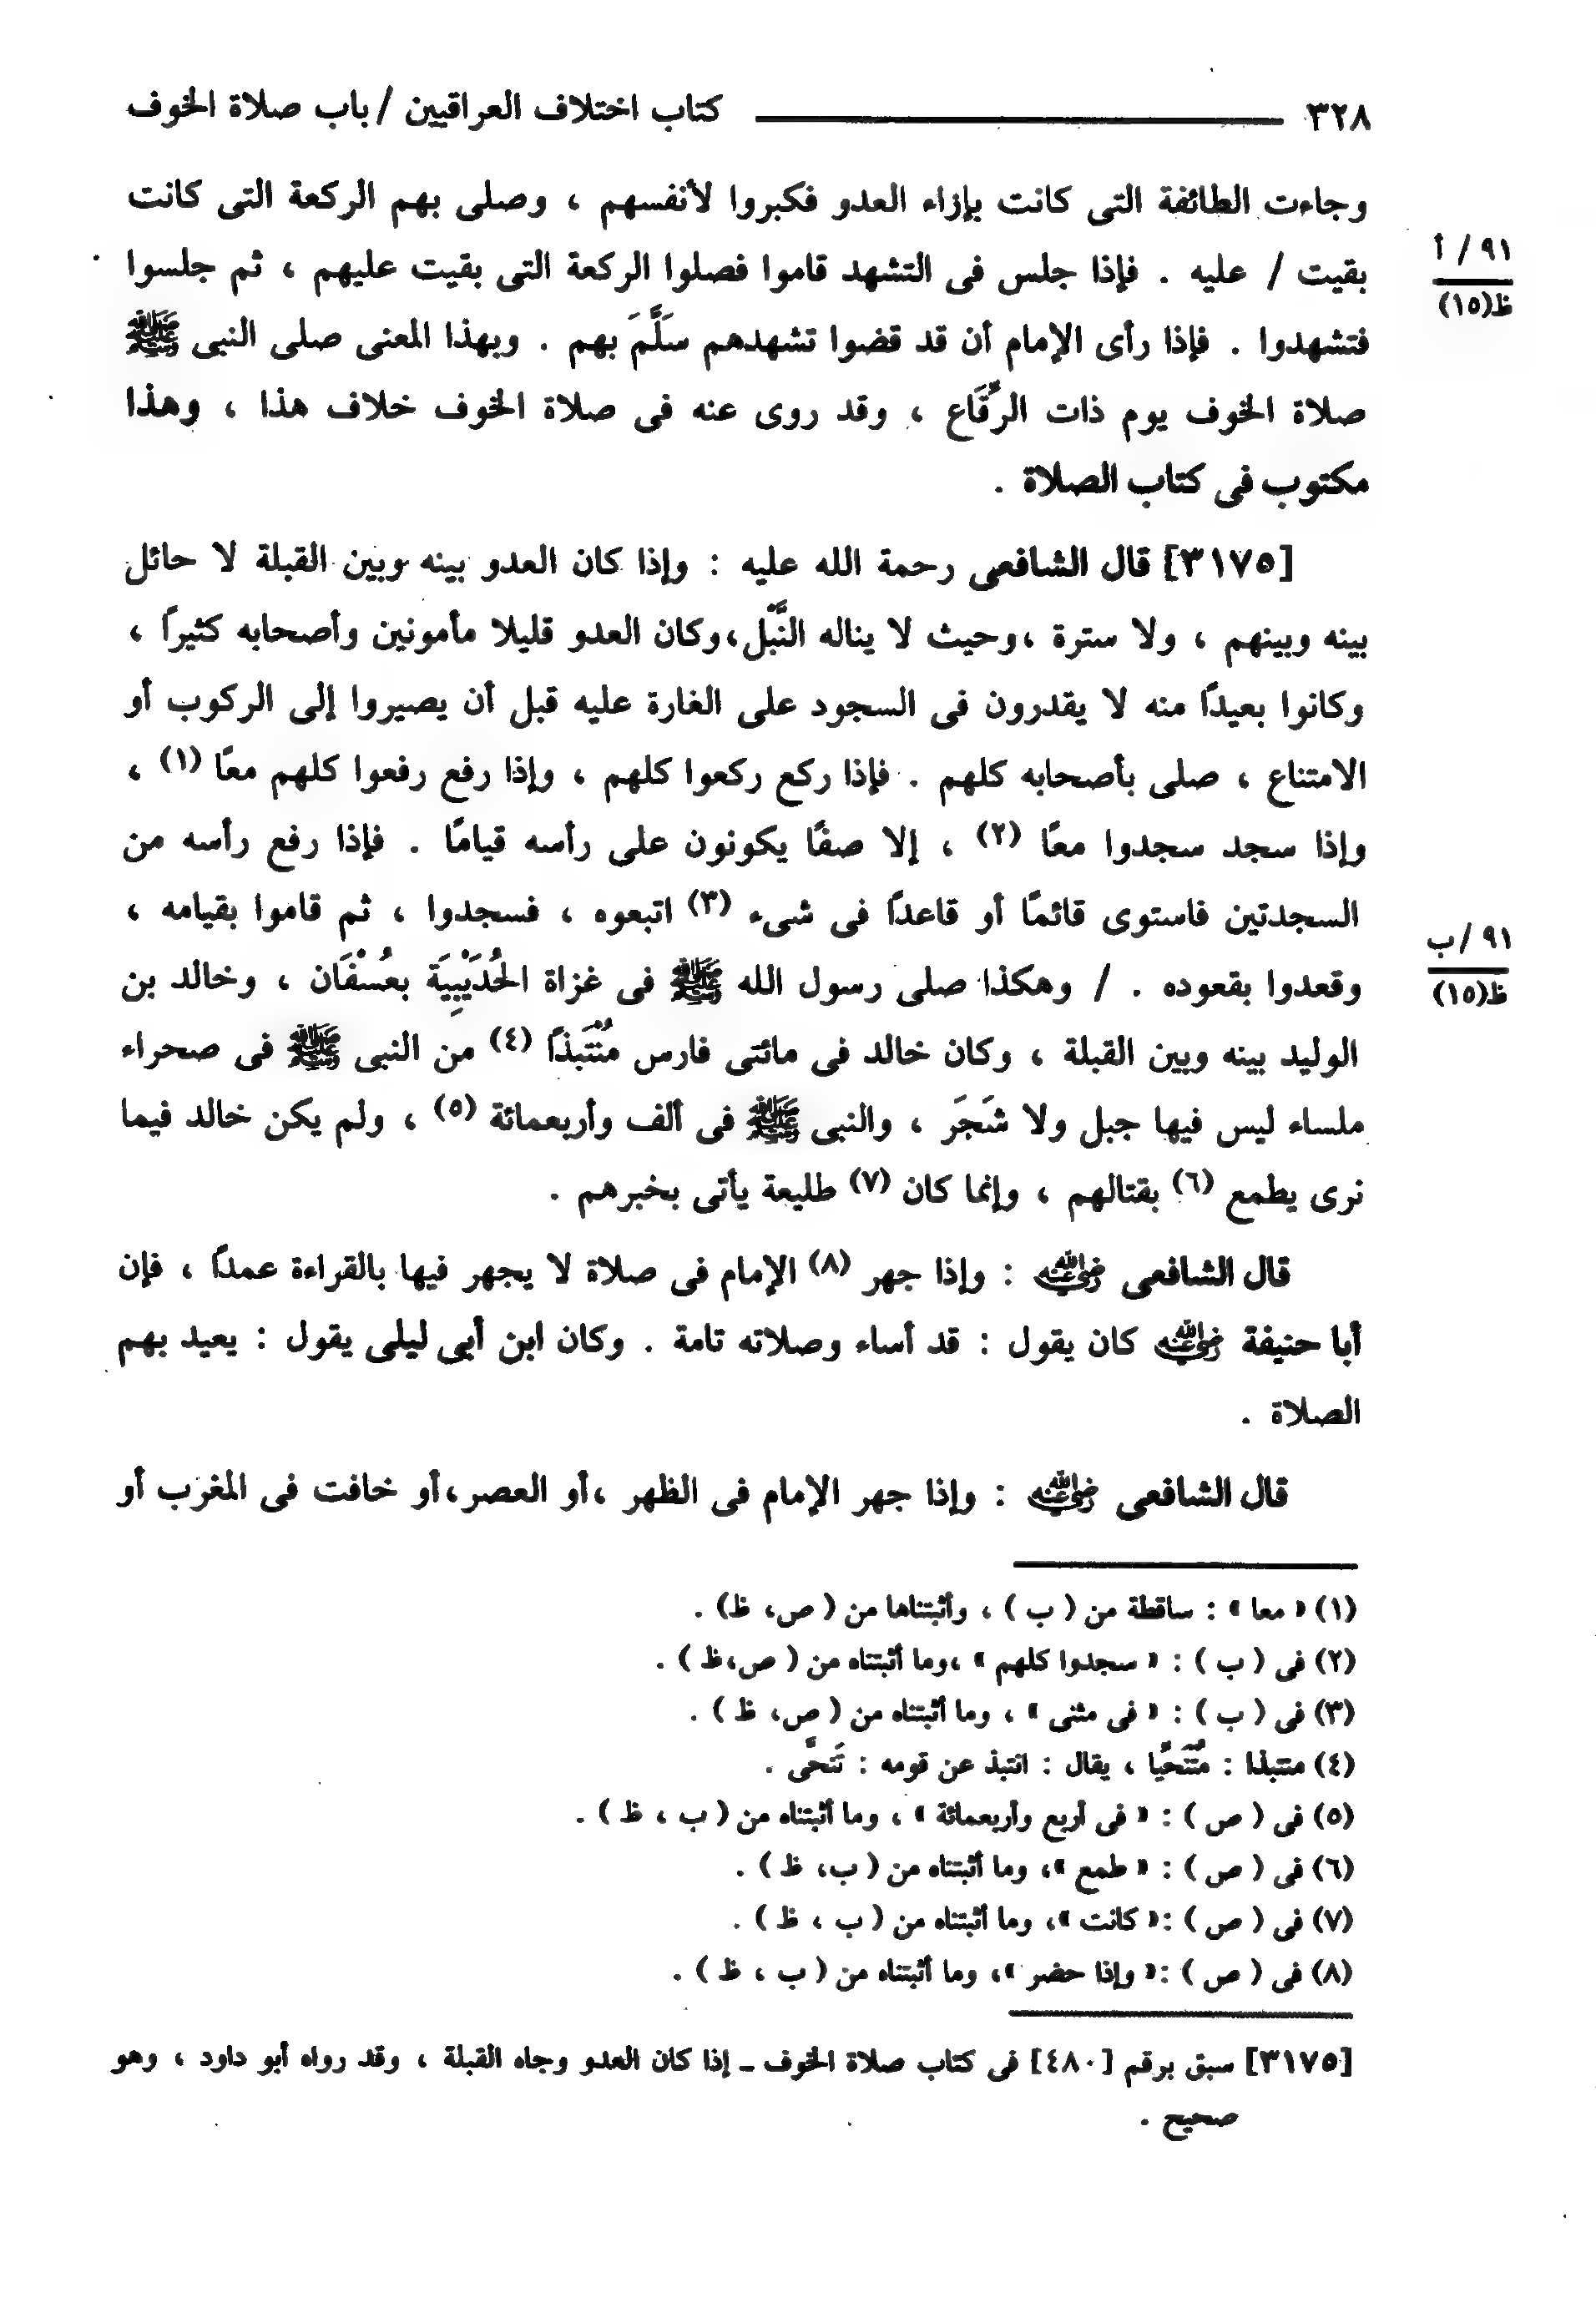 ٣٢٨ كتاب اختلاف العراقيين / باب صلاة الخوف
وجاءت الطائفة التى كانت بإزاء العدو فكبروا لأنفسهم ، وصلى بهم الركعة التى كانت
٩١ / أ
ظ(١٥)
بقيت / عليه . فإذا جلس فى التشهد قاموا فصلوا الركعة التى بقيت عليهم ، ثم جلسوا
فتشهدوا . فإذا رأى الإمام أن قد قضوا تشهدهم سَلَّمَ بهم . وبهذا المعنى صلى النبى ﷺ
صلاة الخوف يوم ذات الرِّقَاع ، وقد روى عنه فى صلاة الخوف خلاف هذا ، وهذا
مكتوب فى كتاب الصلاة .
[٣١٧٥] قال الشافعى رحمة الله عليه : وإذا كان العدو بينه وبين القبلة لا حائل
بينه وبينهم ، ولا سترة ،وحيث لا يناله النَّبْل،وكان العدو قليلا مأمونين وأصحابه كثيرًا ،
وكانوا بعيدًا منه لا يقدرون فى السجود على الغارة عليه قبل أن يصيروا إلى الركوب أو
الامتناع ، صلى بأصحابه كلهم . فإذا ركع ركعوا كلهم ، وإذا رفع رفعوا كلهم معًا (١) ،
وإذا سجد سجدوا معًا (٢) ، إلا صفًا يكونون على رأسه قيامًا . فإذا رفع رأسه من
السجدتين فاستوى قائمًا أو قاعدًا فى شىء (٣) اتبعوه ، فسجدوا ، ثم قاموا بقيامه ،
٩١ /ب
ظ(١٥)
وقعدوا بقعوده . / وهكذا صلى رسول الله ﷺ فى غزاة الحُدَيْبِيَة بعُسْفَان ، وخالد بن
الوليد بينه وبين القبلة ، وكان خالد فى مائتى فارس مُنْتَبَذًا (٤) من النبى ﷺ فى صحراء
ملساء ليس فيها جبل ولا شَجَر ، والنبى ﷺ فى ألف وأربعمائة (٥) ، ولم يكن خالد فيما
نرى يطمع (٦) بقتالهم ، وإنما كان (٧) طليعة يأتى بخبرهم .
قال الشافعى رضي الله عنه : وإذا جهر (٨) الإمام فى صلاة لا يجهر فيها بالقراءة عمدًا ، فإن
أبا حنيفة رضي الله عنه كان يقول : قد أساء وصلاته تامة . وكان ابن أبى ليلى يقول : يعيد بهم
الصلاة .
قال الشافعى رضي الله عنه : وإذا جهر الإمام فى الظهر ،أو العصر،أو خافت فى المغرب أو
(١) « معا » : ساقطة من ( ب ) ، وأثبتناها من ( ص، ظ) .
(٢) فى ( ب ) : « سجدوا كلهم » ،وما أثبتناه من ( ص،ظ ) .
(٣) فى ( ب ) : « فى مثنى » ، وما أثبتناه من ( ص، ظ ) .
(٤) منتبذا : مُتَنَحِّيًا ، يقال : انتبذ عن قومه : تَنَحَّى .
(٥) فى ( ص ) : « فى أربع وأربعمائة » ، وما أثبتناه من ( ب ، ظ ) .
(٦) فى ( ص ) : « طمع »، وما أثبتناه من ( ب، ظ ) .
(٧) فى ( ص ) :« كانت »، وما أثبتناه من ( ب ، ظ ) .
(٨) فى ( ص ) :« وإذا حضر »، وما أثبتناه من ( ب ، ظ ) .
[٣١٧٥] سبق برقم [٤٨٠] فى كتاب صلاة الخوف ـ إذا كان العدو وجاه القبلة ، وقد رواه أبو داود ، وهو
صحيح .